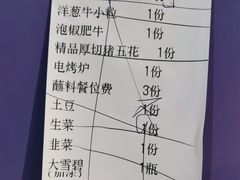 洋葱牛小粒 1份
泡椒肥牛 1份
精品厚切猪五花 1份
电烤炉 1份
蘸料餐位费 3份
土豆 1份
生菜 1份
韭菜 1份
大雪碧 1瓶
(加冰)